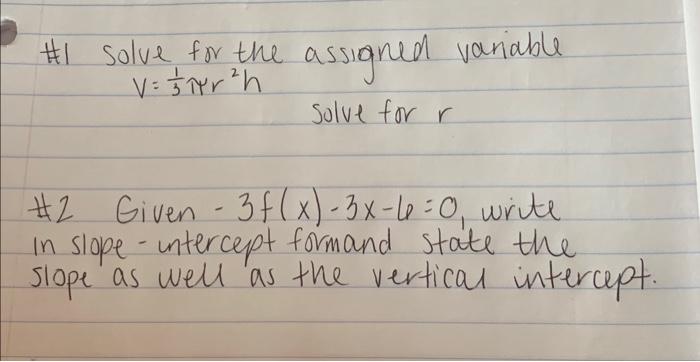 #1 Solve for the assigned variable
V = 1/3 πr²h
Solve for r
#2 Given - 3f(x) - 3x - 6 = 0, write
in slope - intercept formand state the
slope as well as the vertical intercept.